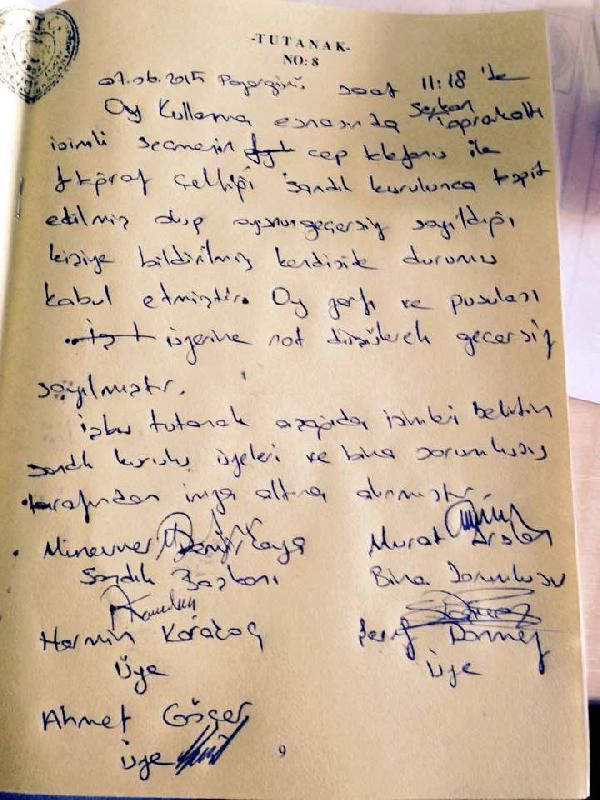 -TUTANAK-
NO: 8
07.06.2015 Pazar günü saat 11:18 'de
Oy kullanma esnasında Serkan Toprakaltı
isimli seçmenin cep telefonu ile
fotoğraf çektiği sandık kurulunca tespit
edilmiş olup oyunun geçersiz sayıldığı
kişiye bildirilmiş kendiside durumu
kabul etmiştir. Oy zarfı ve pusulası
üzerine not düşülerek geçersiz
sayılmıştır.
İşbu tutanak aşağıda isimleri belirtilen
sandık kurulu üyeleri ve bina sorumlusu
tarafından imza altına alınmıştır.
Münevver Demirkaya Murat Arslan
Sandık Başkanı Bina Sorumlusu
Karakoç Dönmez
Üye Üye
Ahmet Göçer
Üye
9